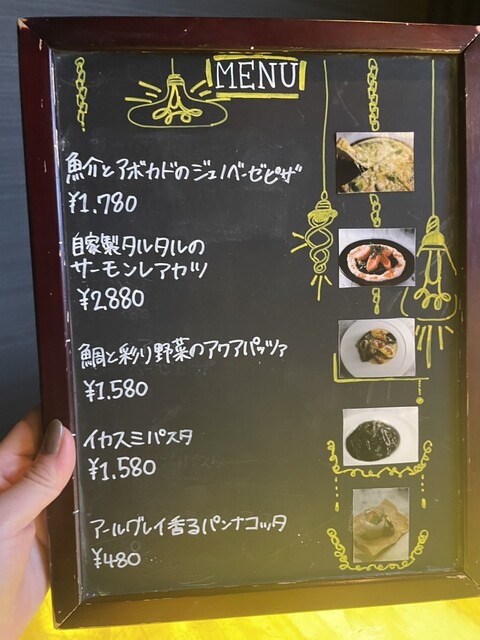 MENU
魚介とアボカドのジェノベーゼピザ
¥1.780
自家製タルタルの
サーモンレアカツ
¥2880
鯛と彩り野菜のアクアパッツァ
¥1.580
イカスミパスタ
¥1,580
アールグレイ香るパンナコッタ
¥480